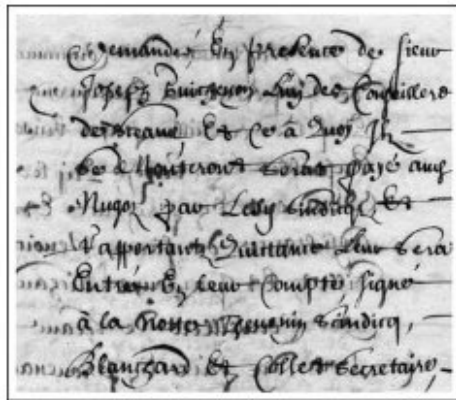 demandé, En presence de sieur
Joseph L'un des Conseillers
de et Ce à Quoy Ilz
se Monteront sera payé aux
par Lesd. sindicz Et
Rapportant Quittance Leur sera
Entré En leur Compte signé
à la scindicq,
Blanchard Et Collet secretaire